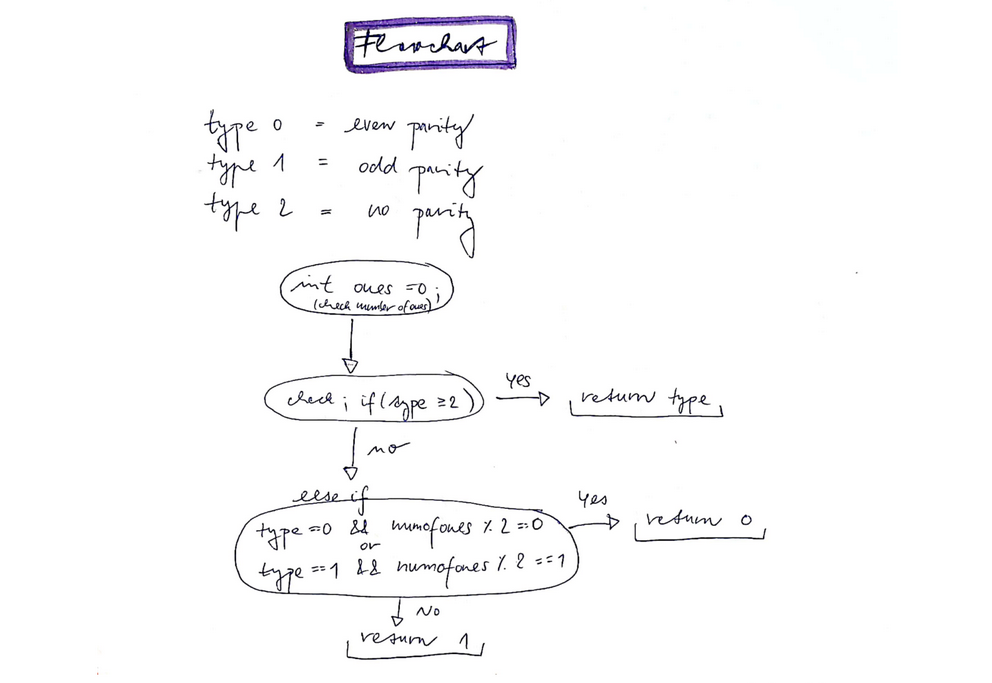 Flowchart
type 0 = even parity
type 1 = odd parity
type 2 = no parity
int ones =0;
(check number of ones)
check ; if (type ≥2)
yes
return type
no
else if
type =0 && numofones % 2 =0
or
type ==1 && numofones % 2 ==1
Yes
return 0
No
return 1